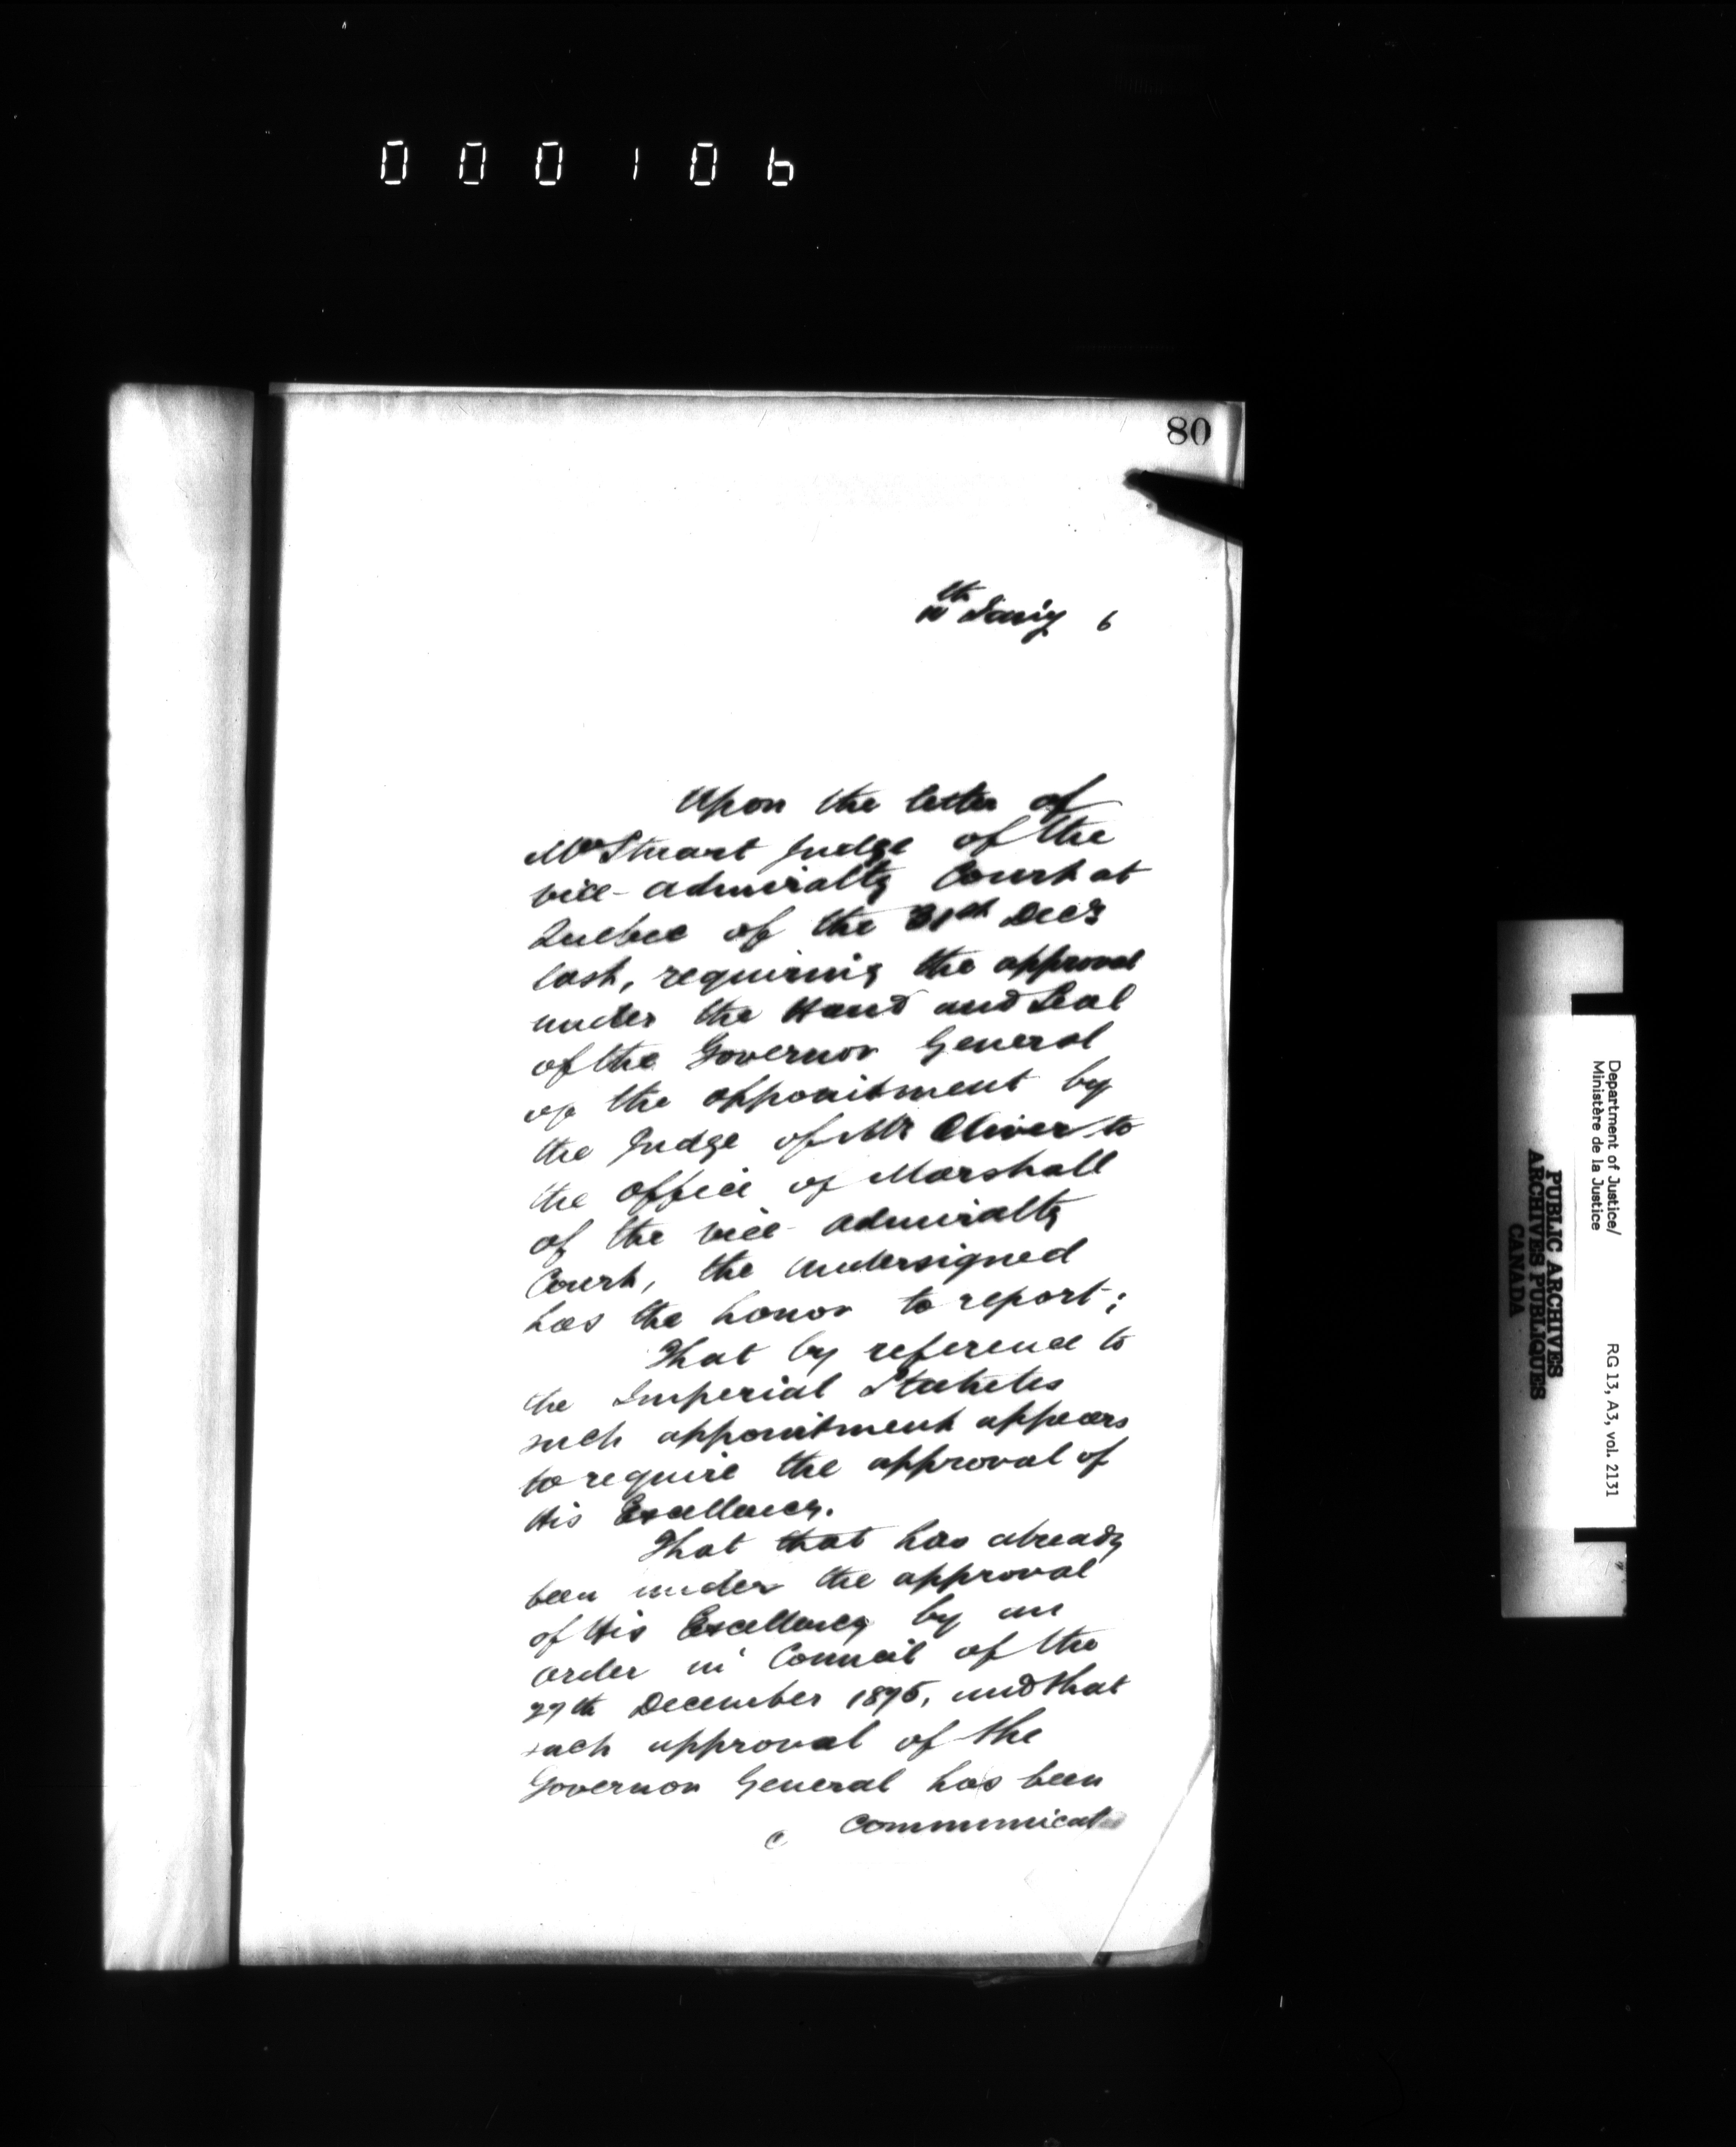 000106
80
th
Jany 6
Upon the letter of
Mr Stuart Judge of the
vice-admiralty Court at
Quebec of the 31st Decr
last, requiring the approval
under the Hand and Seal
of the Governor General
of the appointment by
the Judge of Mr Oliver to
the office of Marshall
of the vice-admiralty
Court, the undersigned
has the honor to report;
That by reference to
the Imperial Statutes
such appointment appears
to require the approval of
His Excellency.
That that has already
been under the approval
of His Excellency by an
order in Council of the
27th December 1875, and that
such approval of the
Governor General has been
communicat
Department of Justice/
Ministère de la Justice
RG 13, A3, vol. 2131
PUBLIC ARCHIVES
ARCHIVES PUBLIQUES
CANADA